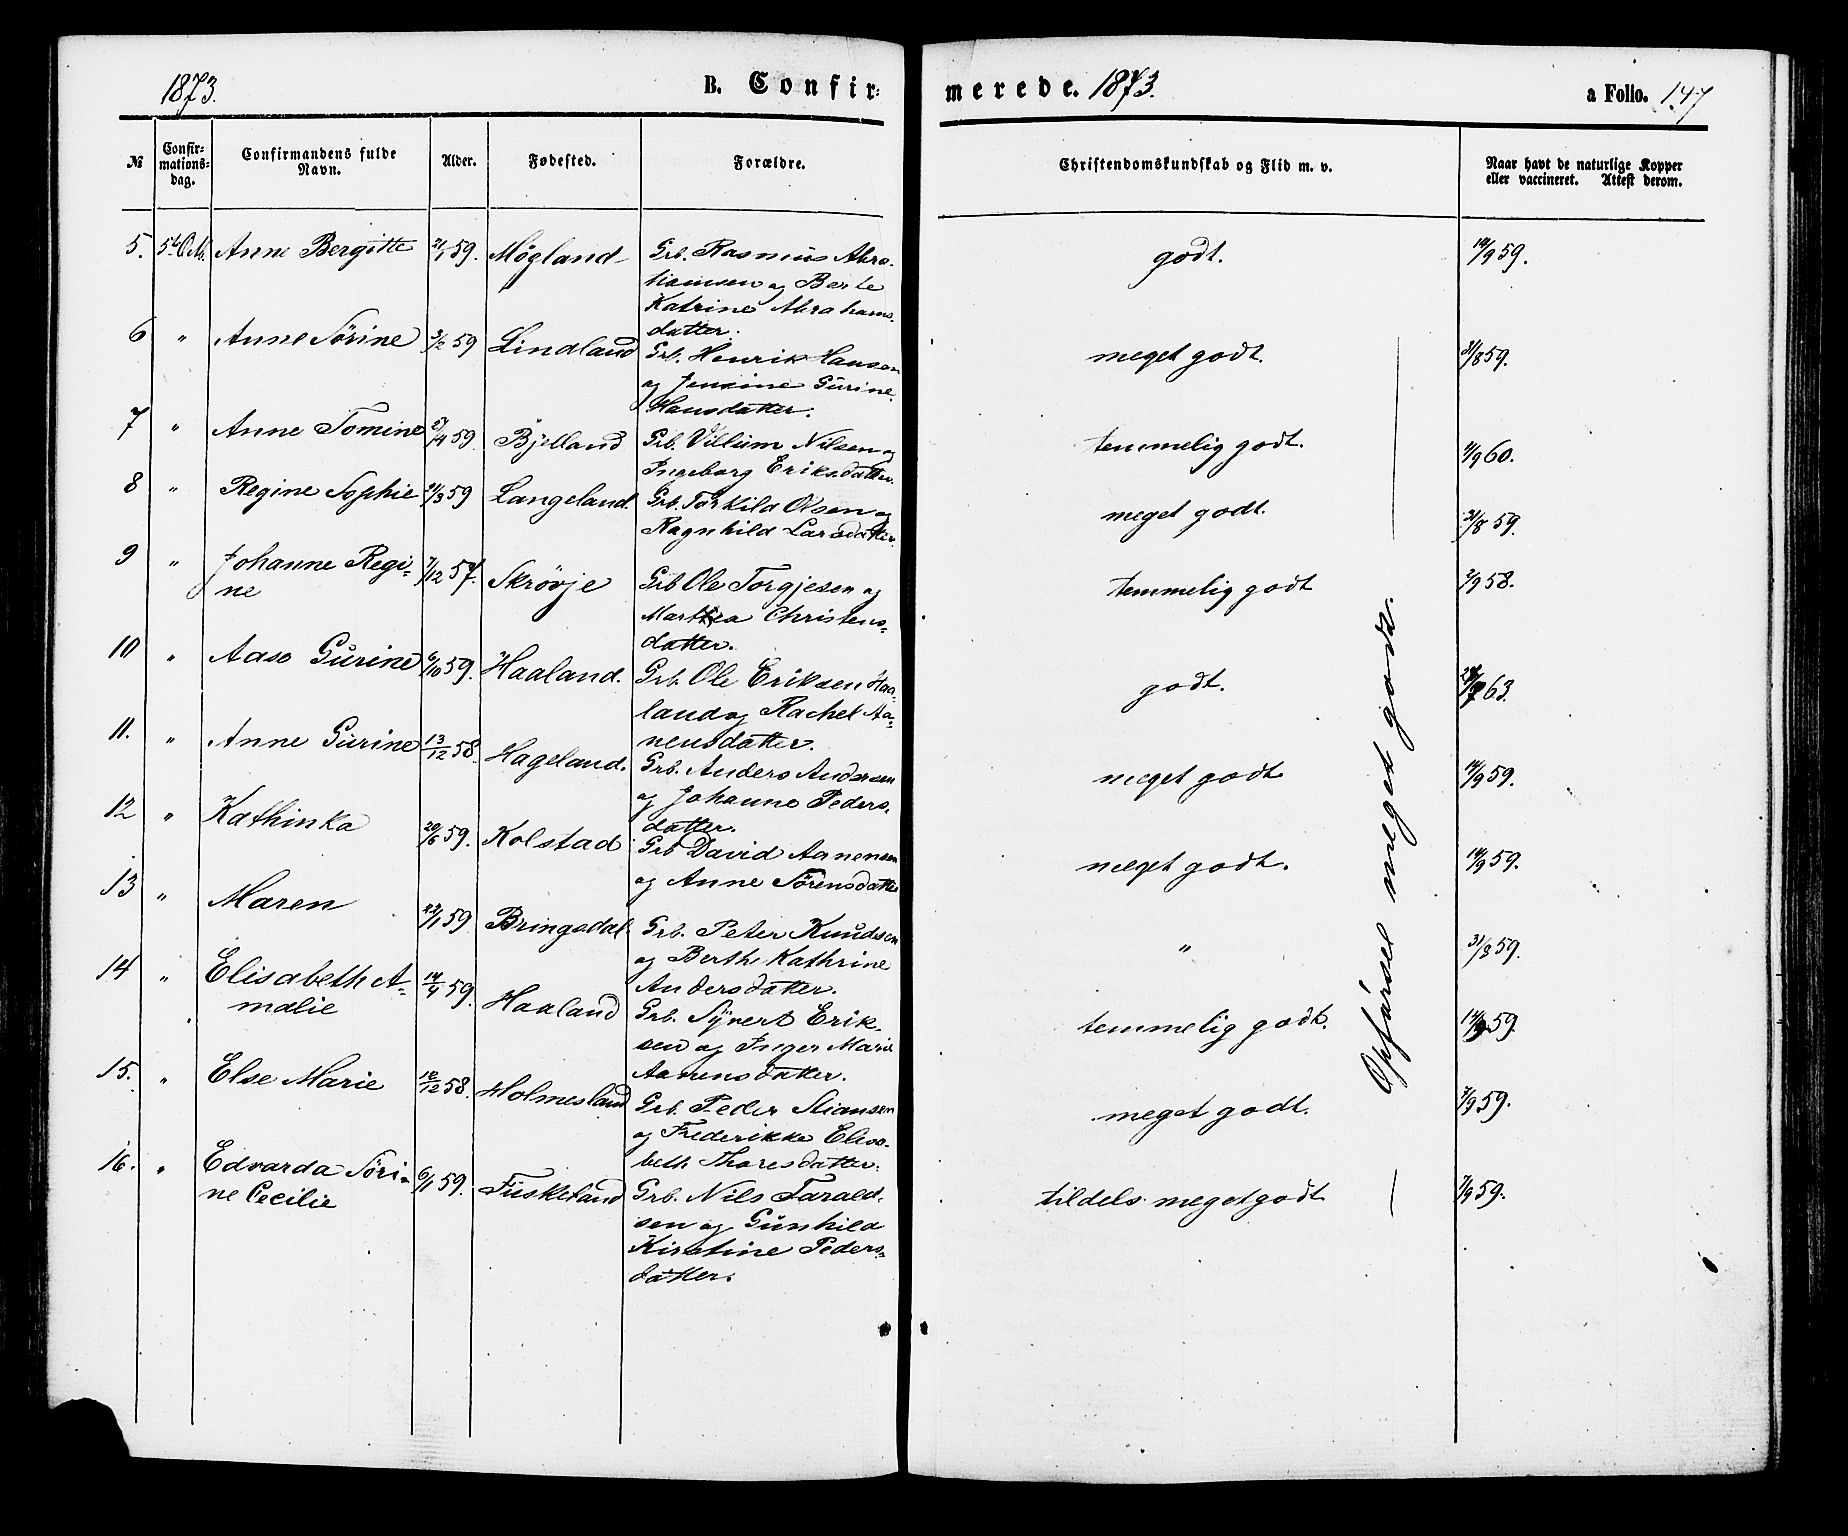 1873. B. Confir- merede. 1873. a Folio. 147
№ Confir-mations-dag. Confirmandens fulde Navn. Alder. Fødested. Forældre. Christendomskundskab og Flid m. v. Naar havt de naturlige Kopper eller vaccineret. Attest derom.
5. 5te Oct. Anne Bergitte 21/1 59. Møgland Grb. Rasmus Abra- godt. 14/9 59.
hamsen og Berte
Katrine Abrahams-
datter.
6 " Anne Sørine 3/2 59 Lindland Grb. Henrik Hansen meget godt. 31/8 59.
og Jensine Gurine
Hansdatter.
7 " Anne Tomine /4 59 Bjelland Grb. Villum Nilsen og temmelig godt. /9 60.
Ingeborg Eriksdatter
8 " Regine Sophie /3 59 Langeland. Grb. Torkild Olsen og meget godt. 31/8 59.
Ragnhild Larsdatter.
9 " Johanne Regi- 7/12 57. Skrøvje Grb Ole Torgjesen og temmelig godt 2/9 58.
ne Marthea Christens-
datter.
10 " Aase Gurine 6/10 59. Haaland. Grb. Ole Eriksen Haa- godt. 63.
land og Rachel Aa-
nensdatter.
11. " Anne Gurine 13/12 58. Hageland. Grb. Anders Andersen meget godt 14/9 59.
og Johanne Peders-
datter.
12 " Kathinka 20/6 59. Kolstad Grb David Aanensen meget godt. 14/9 59.
og Anne Sørensdatter
13 " Maren 22/1 59. Bringsdal. Grb. Peter Knudsen " 31/8 59.
og Berthe Kathrine
Andersdatter.
14 " Elisabeth A- 14/4 59. Haaland Grb. Syvert Erik- temmelig godt. 14/9 59.
malie sen og Inger Marie
Aanensdatter.
15. " Else Marie 12/12 58. Holmesland Grb. Peder Stiansen meget godt. 7/9 59.
og Frederikke Elisa-
beth Thoresdatter.
16. " Edvarda Søri- 6/1 59. Fuskeland Grb. Nils Tarald- tildels meget godt 7/9 59.
ne Cecilie sen og Gunhild
Kirstine Peders-
datter.
Opførsel meget godt.